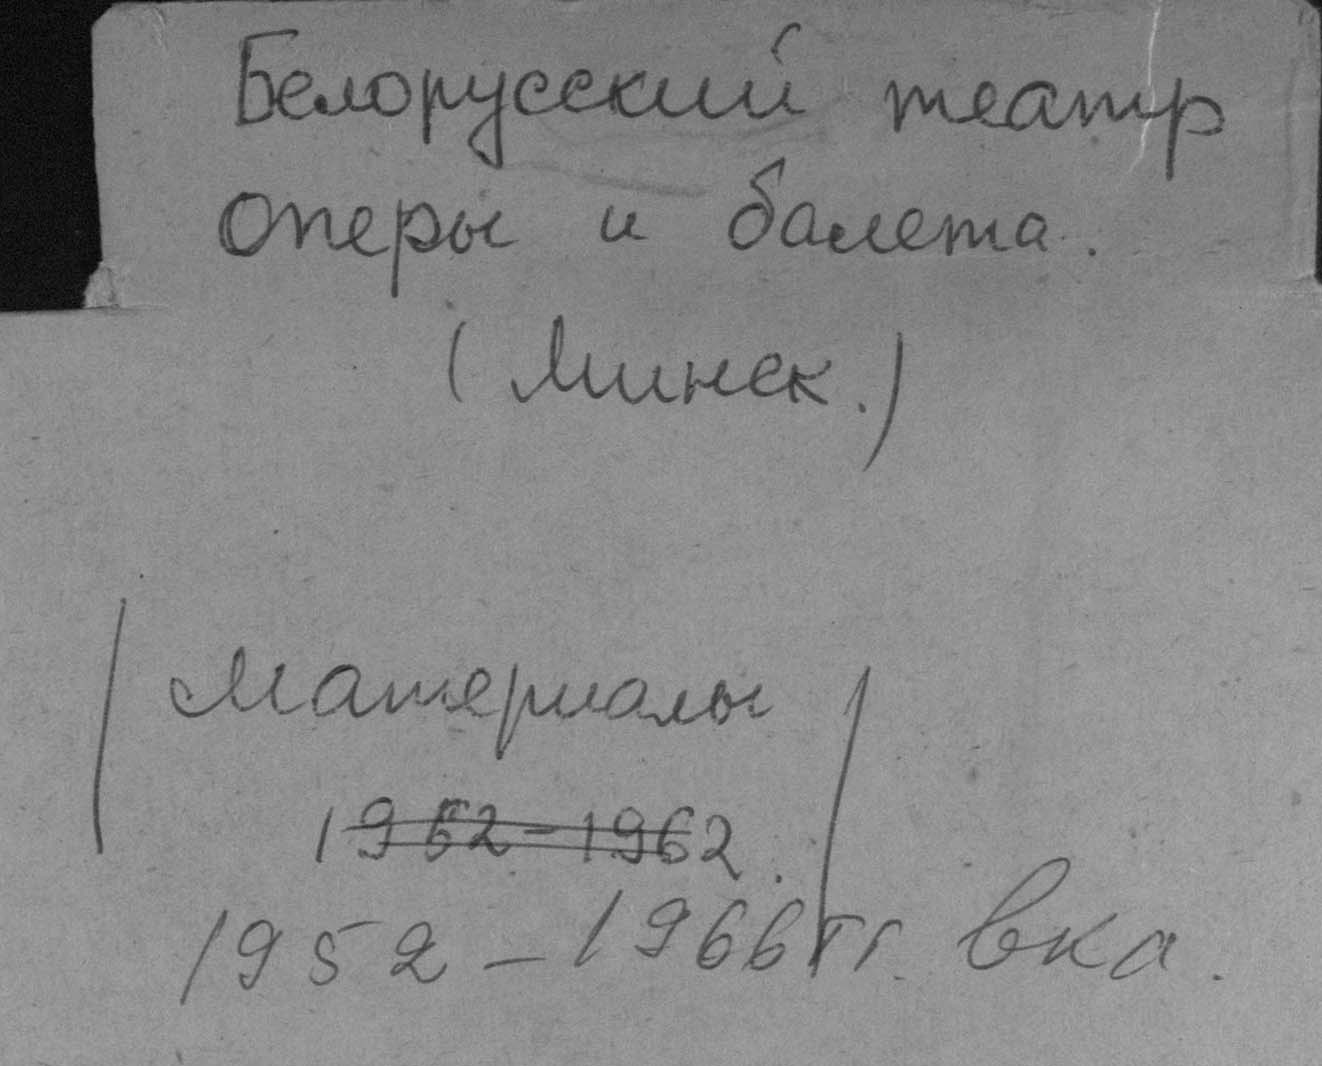 Белорусский театр
оперы и балета.
(Минск.)
Материалы
1952-1962.
1952-1966 гг. вка.